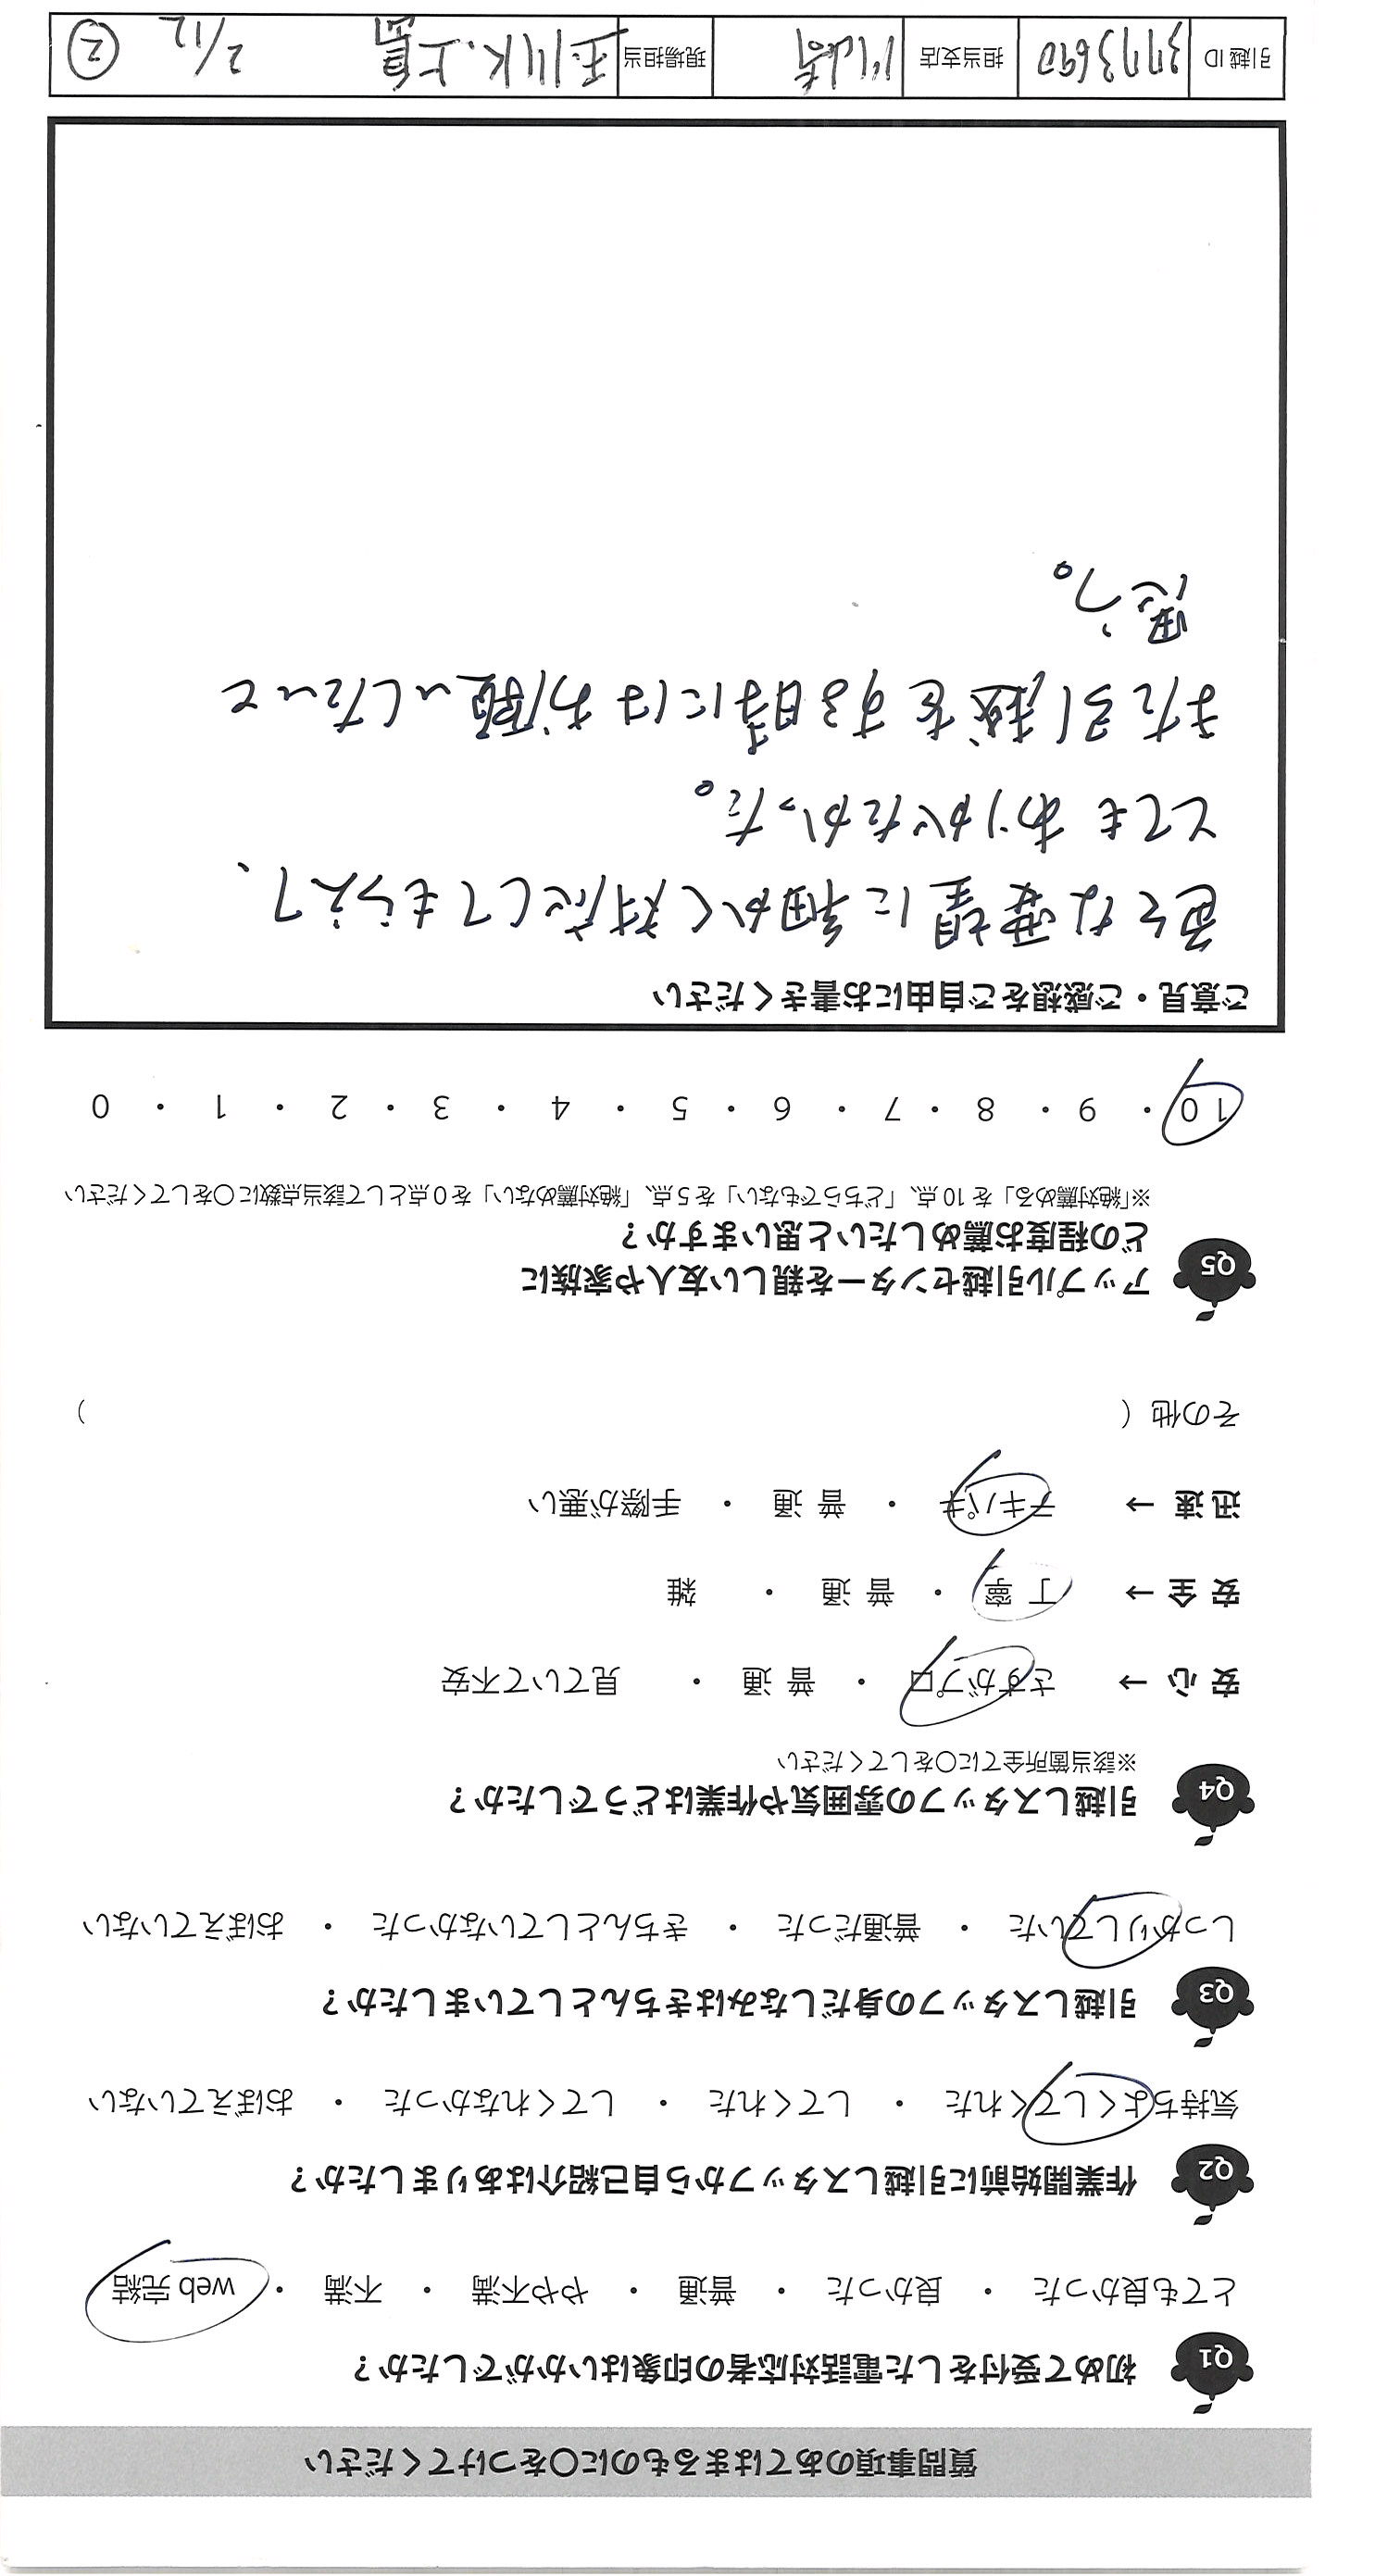 質問事項のあてはまるものに○をつけてください
Q1 初めて受付をした電話対応者の印象はいかがでしたか？
とても良かった ・ 良かった ・ 普通 ・ やや不満 ・ 不満 ・ web 完結
Q2 作業開始前に引越しスタッフから自己紹介はありましたか？
気持ちよくしてくれた ・ してくれた ・ してくれなかった ・ おぼえていない
Q3 引越しスタッフの身だしなみはきちんとしていましたか？
しっかりしていた ・ 普通だった ・ きちんとしていなかった ・ おぼえていない
Q4 引越しスタッフの雰囲気や作業はどうでしたか？
※該当箇所全てに○をしてください
安 心 → さすがプロ ・ 普 通 ・ 見ていて不安
安 全 → 丁 寧 ・ 普 通 ・ 雑
迅 速 → テキパキ ・ 普 通 ・ 手際が悪い
その他（ ）
Q5 アップル引越センターを親しい友人や家族に
どの程度お薦めしたいと思いますか？
※「絶対薦める」を 10 点、「どちらでもない」を 5 点、「絶対薦めない」を 0 点として該当点数に○をしてください
10 ・ 9 ・ 8 ・ 7 ・ 6 ・ 5 ・ 4 ・ 3 ・ 2 ・ 1 ・ 0
ご意見・ご感想をご自由にお書きください
色々な要望に細かく対応してもらえて、
とてもありがたかった。
また引越をする時にはお願いしたいと
思う。
引越 ID 3773690 担当支店 川崎 現場担当 玉川K.上島 2/12 ②